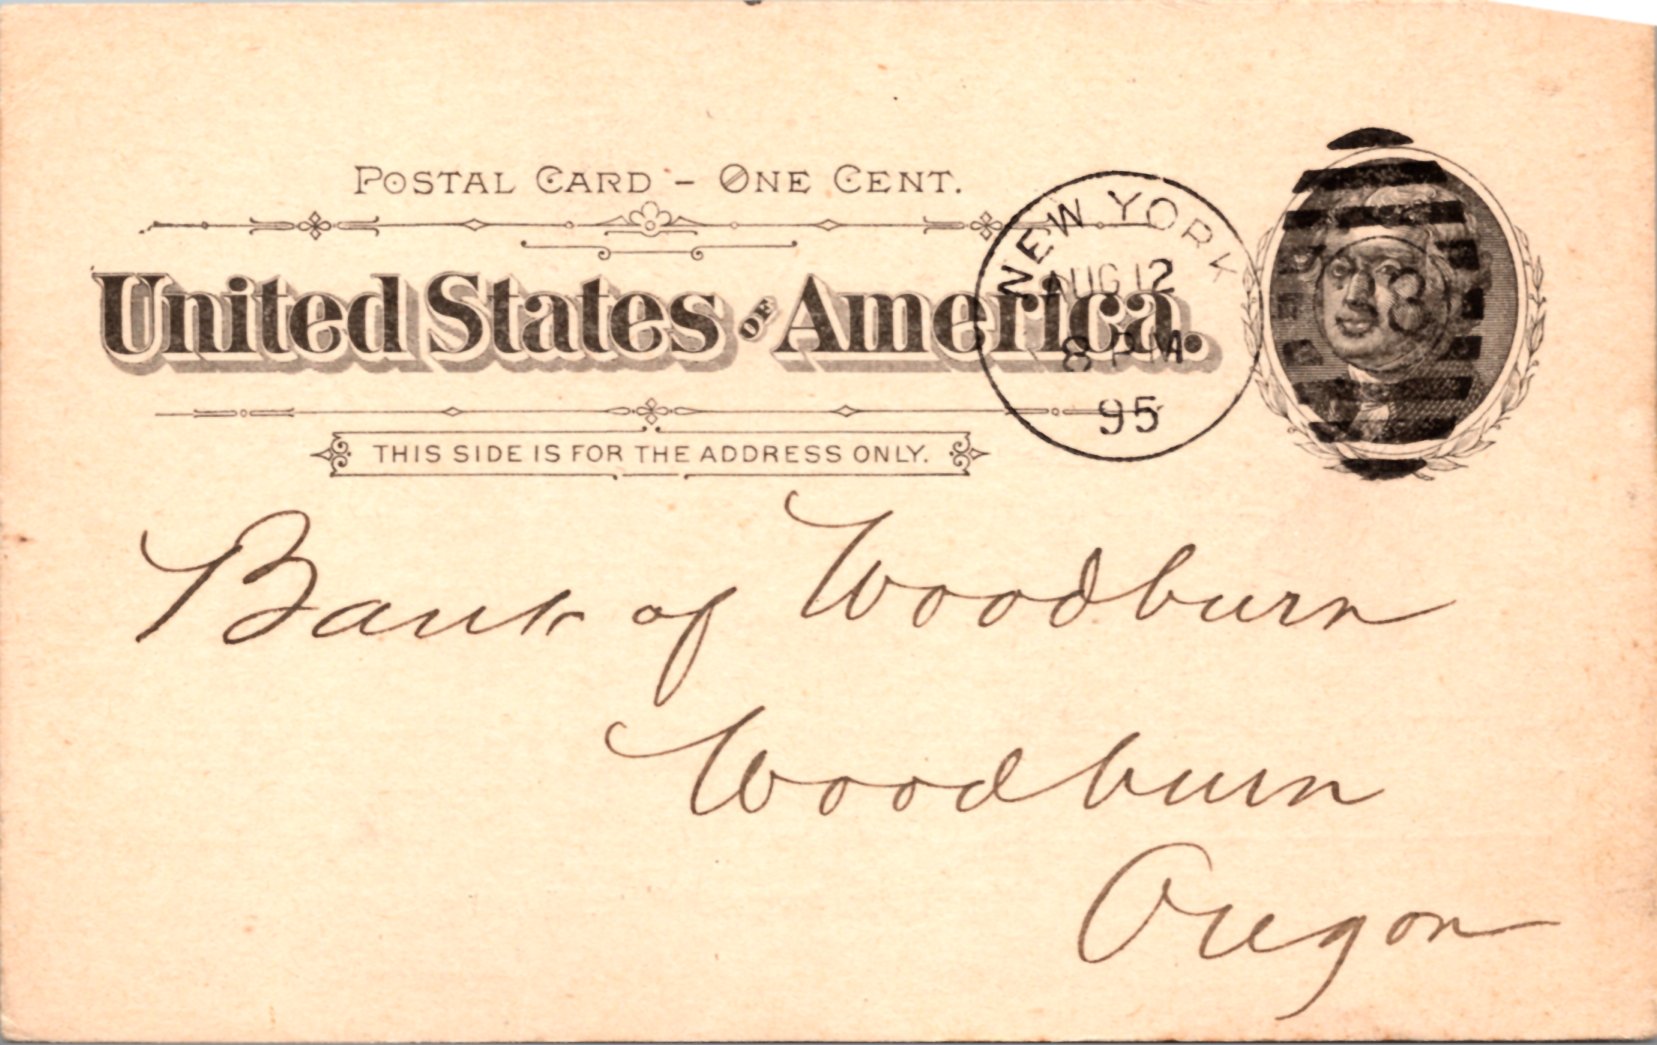 POSTAL CARD - ONE CENT.
United States OF America.
THIS SIDE IS FOR THE ADDRESS ONLY.
NEW YORK
AUG 12
8 PM
95
3
Bank of Woodburn
Woodburn
Oregon